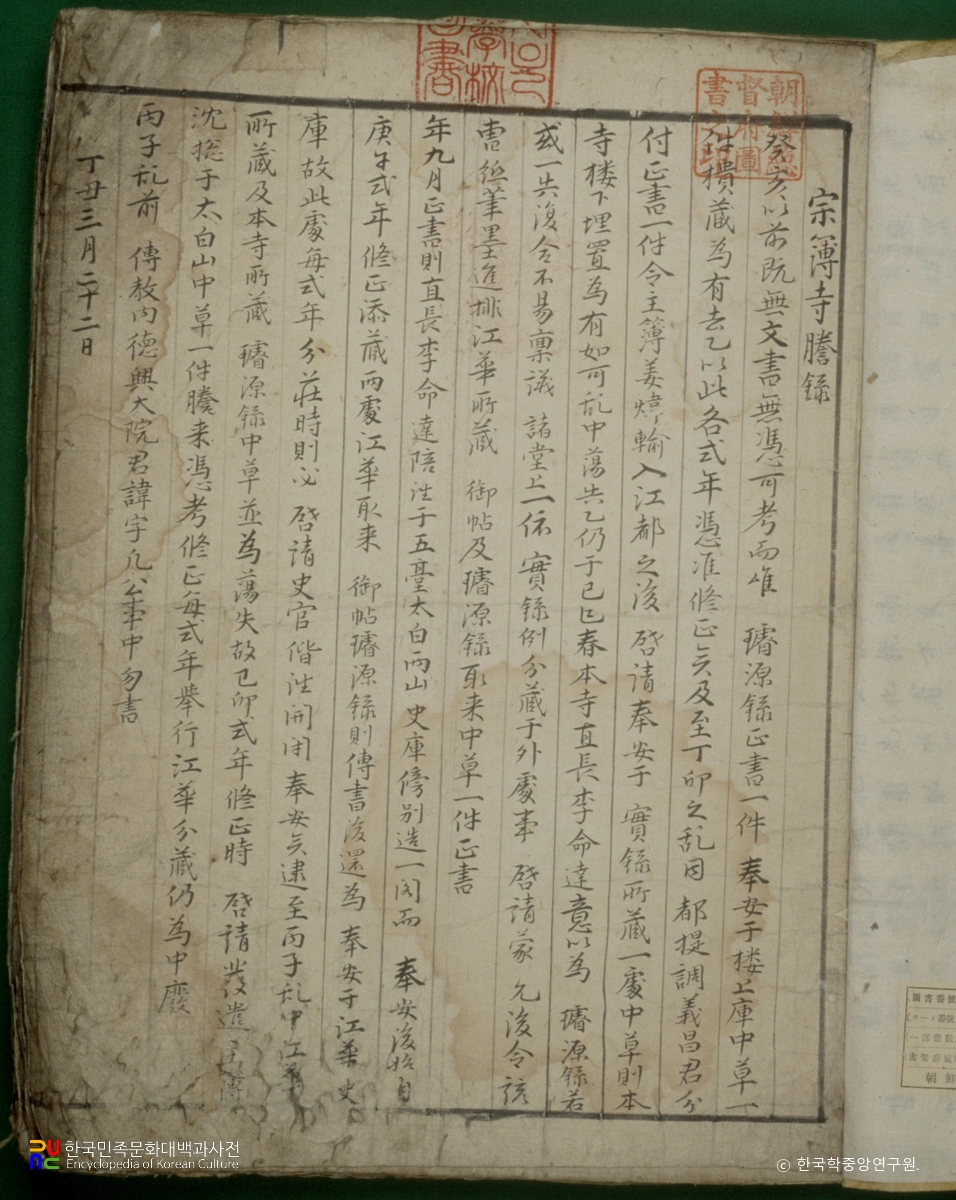 宗簿寺謄錄
癸亥以前既無文書無憑可考而唯 璿源錄正書一件 奉安于樓上庫中草一
件樻藏為有去乙以此各式年憑准修正矣及至丁卯之乱因 都提調義昌君分
付正書一件令主簿姜煒輸入江都之後 啓請奉安于 實錄所藏一處中草則本
寺樓下埋置為有如可乱中蕩失乙仍于己巳春本寺直長李命達意以為 璿源錄若
或一失復舍不易稟議 諸堂上一依 實錄例分藏于外處事 啓請蒙 允後令該
曹紙筆墨進排江華所藏 御帖及璿源錄取来中草一件正書
年九月正書則直長李命達陪往于五臺太白兩山 史庫傍别造一閣而 奉安後始自
庚午式年修正添藏兩處江華取来 御帖璿源錄則傳書後還為 奉安于江華史
庫故此處每式年分莊時則必 啓請史官偕往開閉 奉安矣逮至丙子乱中江華
所藏及本寺所藏 璿源錄中草並為蕩失故己卯式年修正時 啓請發遣
沈摠于太白山中草一件謄来憑考修正每式年舉行江華分藏仍為中廢
丙子乱前 傳教內德興大院君諱字凡公事中勿書
丁丑三月二十二日
朝
督府圖
書
學校
圖書
한국민족문화대백과사전
Encyclopedia of Korean Culture
圖書番號
朝鮮
© 한국학중앙연구원.